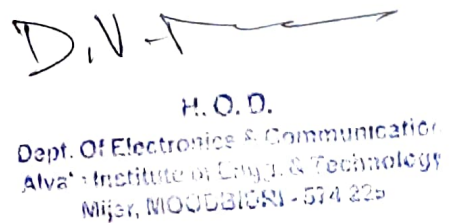 D.V
H. O. D.
Dept. Of Electronics & Communication
Alva's Institute of Engg. & Technology
Mijar, MOODBIDRI - 574 225